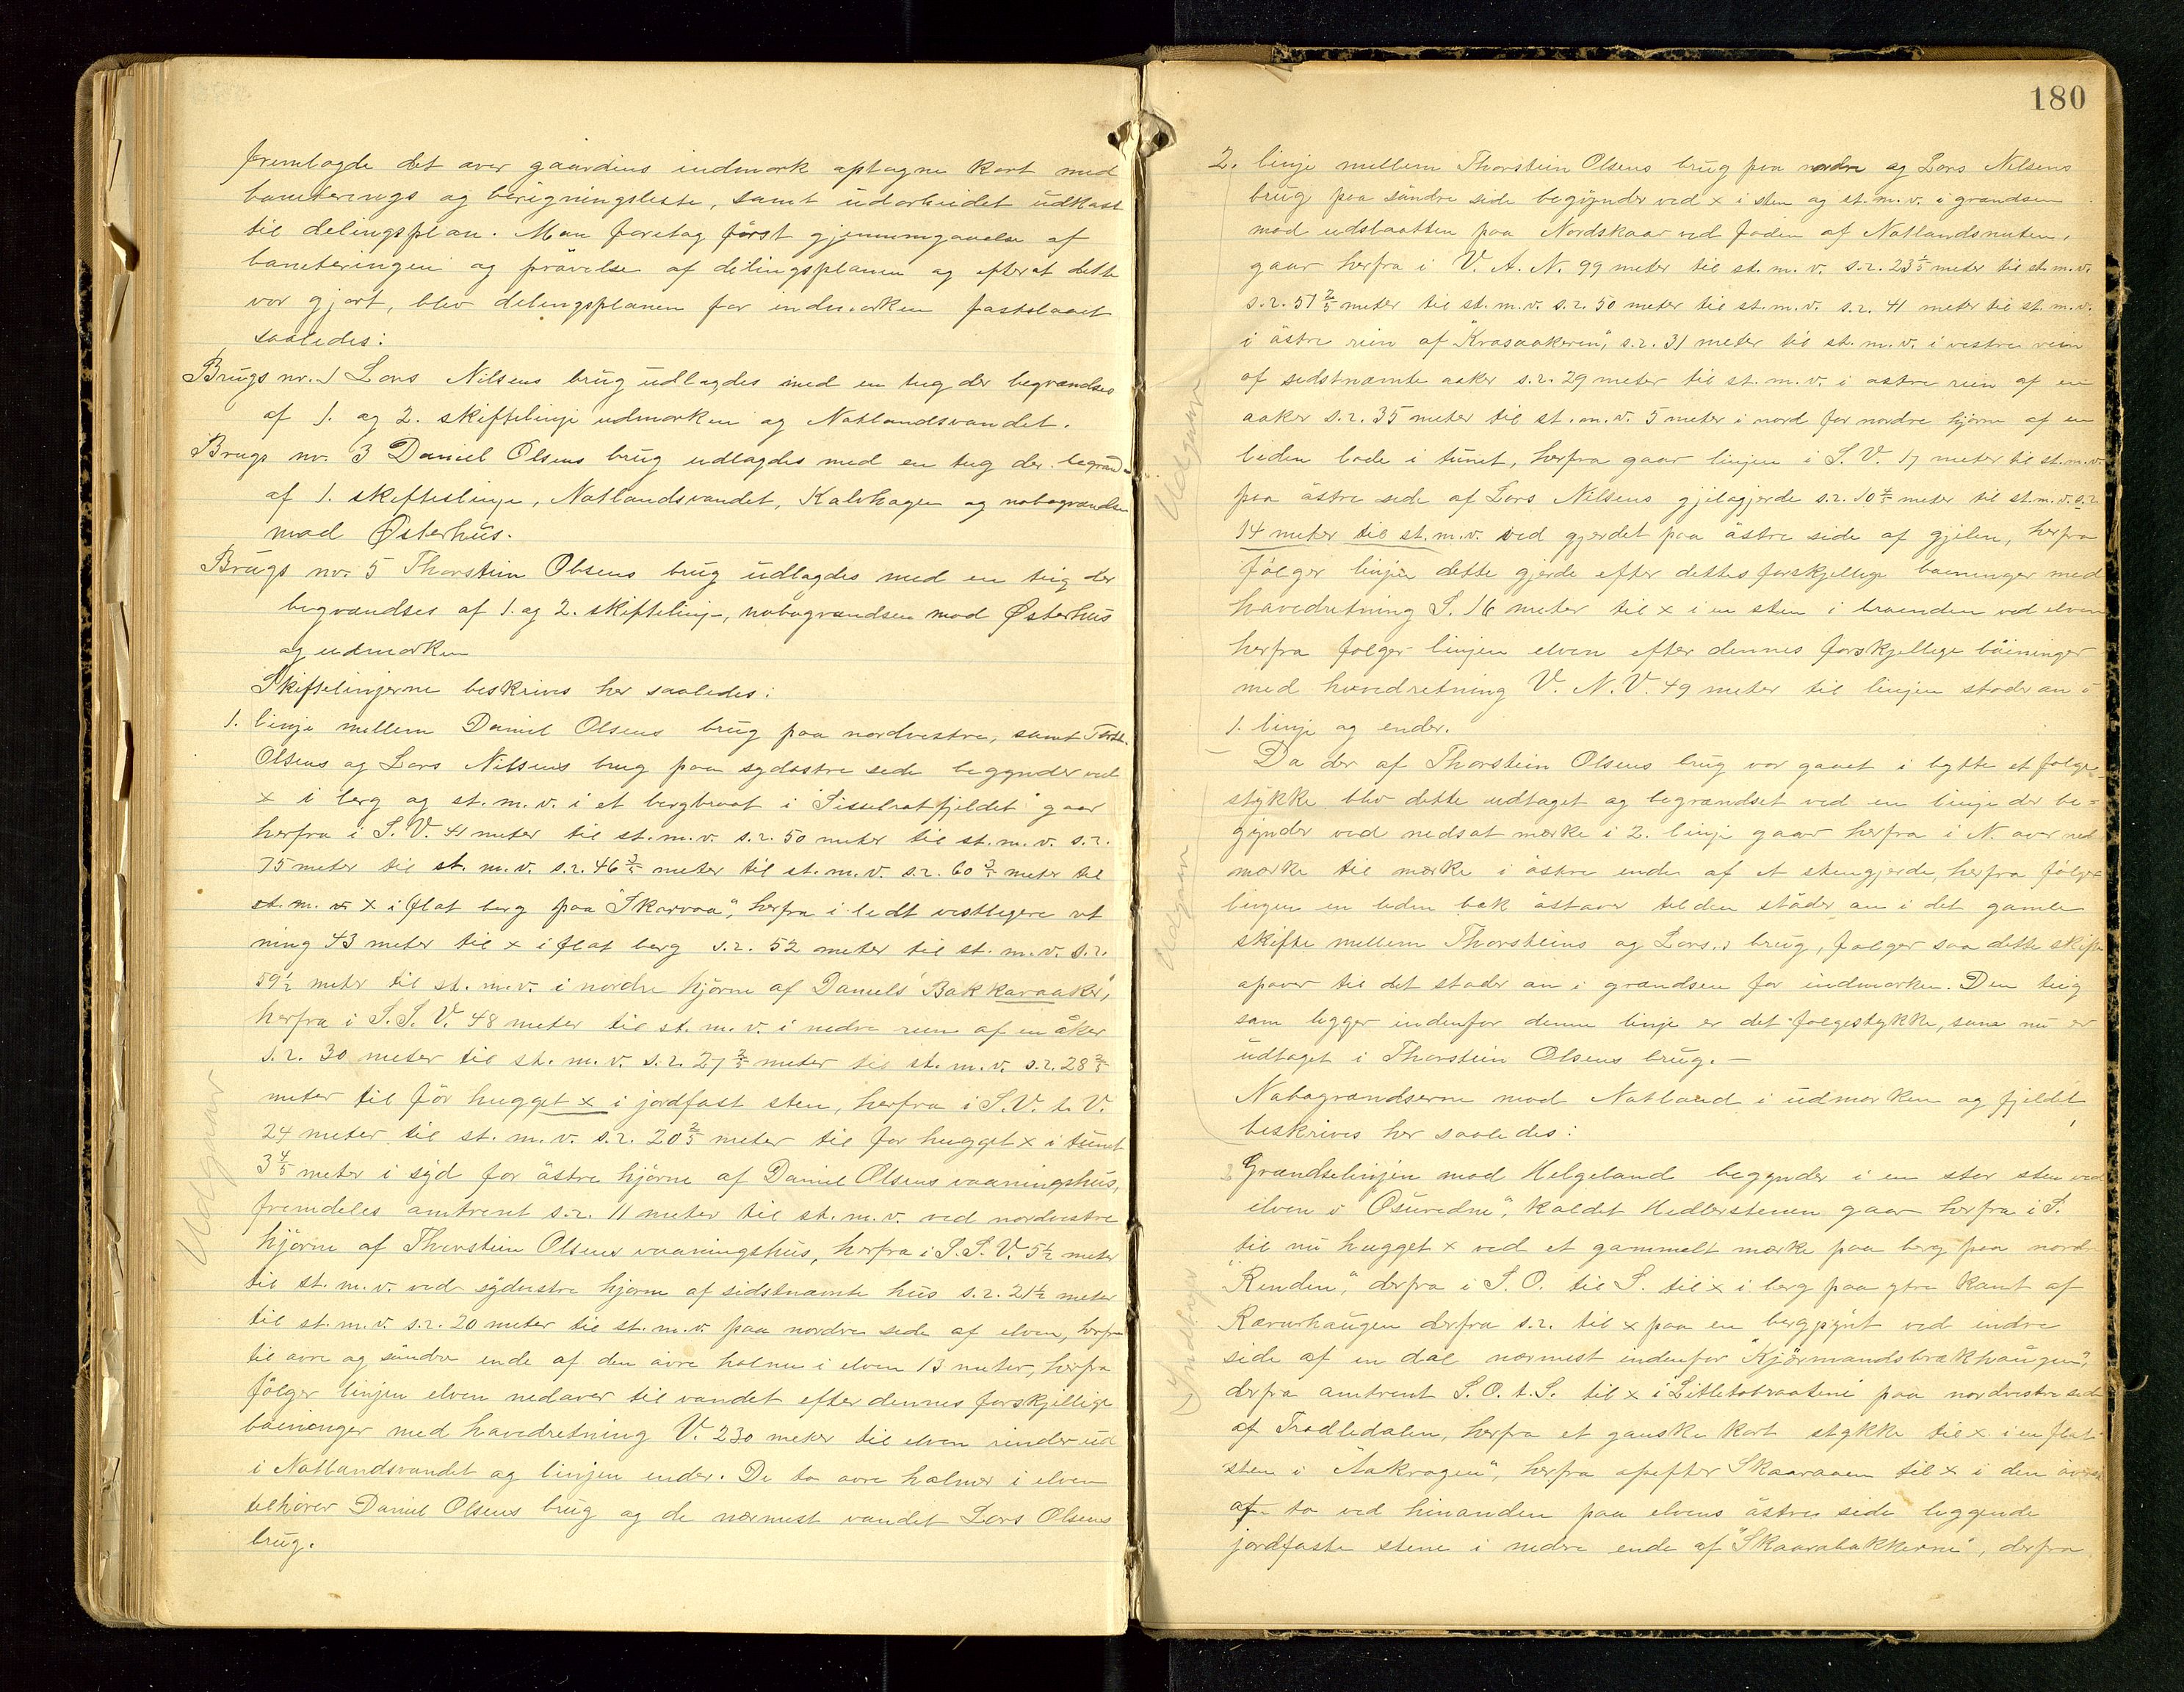 fremlagde det over gaardens indmark optagne kart med
boniterings og beregningsliste, samt udarbeidet udkast
til delingsplan. Man foretog först gjennemgaaelse af
boniteringen og prövelse af delingsplanen og efterat dette
var gjort, blev delingsplanen for indmarken fastslaaet
saaledes:
Brugs nr. 1 Lars Nilsens brug udlagdes med en teig der begrændses
af 1. og 2. skiftelinje udmarken og Natlandsvandet.
Brugs nr. 3 Daniel Olsens brug udlagdes med en teig der begrænd-
af 1. skifteslinje, Natlandsvandet, Kalvhagen og nabogrændsen
mod Østerhus.
Brugs nr. 5 Thorstein Olsens brug udlagdes med en teig der
begrændses af 1. og 2. skiftelinje, nabogrændsen mod Østerhus
og udmarken
Skiftelinjerne beskrives her saaledes:
1. linje mellem Daniel Olsens brug paa nordvestre, samt Thorst.
Olsens og Lars Nilsens brug paa sydöstre side begynder ved
x i berg og st. m. v. i et bergbraat i "Sisselratfjeldet" gaar
herfra i S. V. 41 meter til st. m. v. s. r. 50 meter til st. m. v. s. r.
75 meter til st. m. v. s. r. 46 2/5 meter til st. m. v. s. r. 60 2/5 meter til
st. m. v. x i flat berg paa "Skarvaa", herfra i lidt vestligere ret
ning 43 meter til x i flat berg s. r. 52 meter til st. m. v. s. r.
59 1/2 meter til st. m. v. i nordre hjörne af Daniels "Bakkaraaker",
herfra i S. S. V. 48 meter til st. m. v. i nedre rein af en åker
s. r. 30 meter til st. m. v. s. r. 27 2/5 meter til st. m. v. s. r. 28 2/5
meter til för hugget x i jordfast sten, herfra i S. V. t. V.
24 meter til st. m. v. s. r. 20 2/5 meter til för hugget x i tunet
3 4/5 meter i syd for östre hjörne af Daniel Olsens vaaningshus,
fremdeles omtrent s. r. 11 meter til st. m. v. ved nordvestre
hjörne af Thorstein Olsens vaaningshus, herfra i S. S. V. 5 1/2 meter
til st. m. v. ved sydvestre hjörne af sidstnævnte hus s. r. 21 1/2 meter
til st. m. v. s. r. 20 meter til st. m. v. paa nordre side af elven, herfra
til övre og söndre ende af den övre holme i elven 13 meter, herfra
fölger linjen elven nedover til vandet efter dennes forskjellige
böininger med hovedretning V. 230 meter til elven rinder ud
i Natlandsvandet og linjen ender. De to övre holmer i elven
tilhörer Daniel Olsens brug og de nærmest vandet Lars Olsens
brug.
Udgaar
180
2. linje mellem Thorstein Olsens brug paa nordre og Lars Nilsens
brug paa söndre side begynder ved x i sten og st. m. v. i grændsen
mod udslaatten paa Nordskaar ved foden af Natlandsnuten,
gaar herfra i V. t. N. 99 meter til st. m. v. s. r. 23 2/5 meter til st. m. v.
s. r. 51 2/5 meter til st. m. v. s. r. 50 meter til st. m. v. s. r. 41 meter til st. m. v.
i östre rein af "Krasaakeren", s. r. 31 meter til st. m. v. i vestre rein
af sidstnævnte aaker s. r. 29 meter til st. m. v. i östre rein af en
aaker s. r. 35 meter til st. m. v. 5 meter i nord for nordre hjörne af en
liden lade i tunet, herfra gaar linjen i S. V. 17 meter til st. m. v.
paa östre side af Lars Nilsens gjilagjerde s. r. 10 4/5 meter til st. m. v. s. r.
14 meter til st. m. v. ved gjerdet paa östre side af gjilen, herfra
fölger linjen dette gjerde efter dettes forskjellige böininger med
hovedretning S. 16 meter til x i en sten i braenden ved elven
herfra fölger linjen elven efter dennes forskjellige böininger
med hovedretning V. N. V. 49 meter til linjen stöder an i
1. linje og ender.
Da der af Thorstein Olsens brug var gaaet i bytte et fölge-
stykke blev dette udtaget og begrændset ved en linje der be-
gynder ved nedsat mærke i 2. linje gaar herfra i N. over ned
mærke til mærke i östre ende af et stengjerde, herfra fölger
linjen en liden bæk östover til den stöder an i det gamle
skifte mellem Thorsteins og Lars's brug, fölger saa dette skifte
opover til det stöder an i grændsen for indmarken. Den teig
som ligger indenfor denne linje er det fölgestykke, som nu er
udtaget i Thorstein Olsens brug. —
Nabogrændserne mod Natland i udmarken og fjeldet
beskrives her saaledes:
Grændselinjen mod Helgeland begynder i en stor sten ved
elven i "Osuredne", kaldet Hedlerstenen gaar herfra i S.
til nu hugget x ved et gammelt mærke paa berg paa nordre
"Renden", derfra i S. O. til S. til x i berg paa ytre kant af
Rævurhaugen derfra s. r. til x paa en bergpynt ved indre
side af en dal nærmest indenfor "Kjörmandsbrækhaugen",
derfra omtrent S. O. t. S. til x i "Litletobraatene" paa nordvestre side
af Trodledalen, herfra et ganske kort stykke til x i en flat
sten i "Aakrogen", herfra opefter Skaaraaen til x i den överste
af to ved hinanden paa elvens östre side liggende
jordfaste stene i nedre ende af "Skaarabakkerne", derfra
Udgaar
Udgaar
Indtages